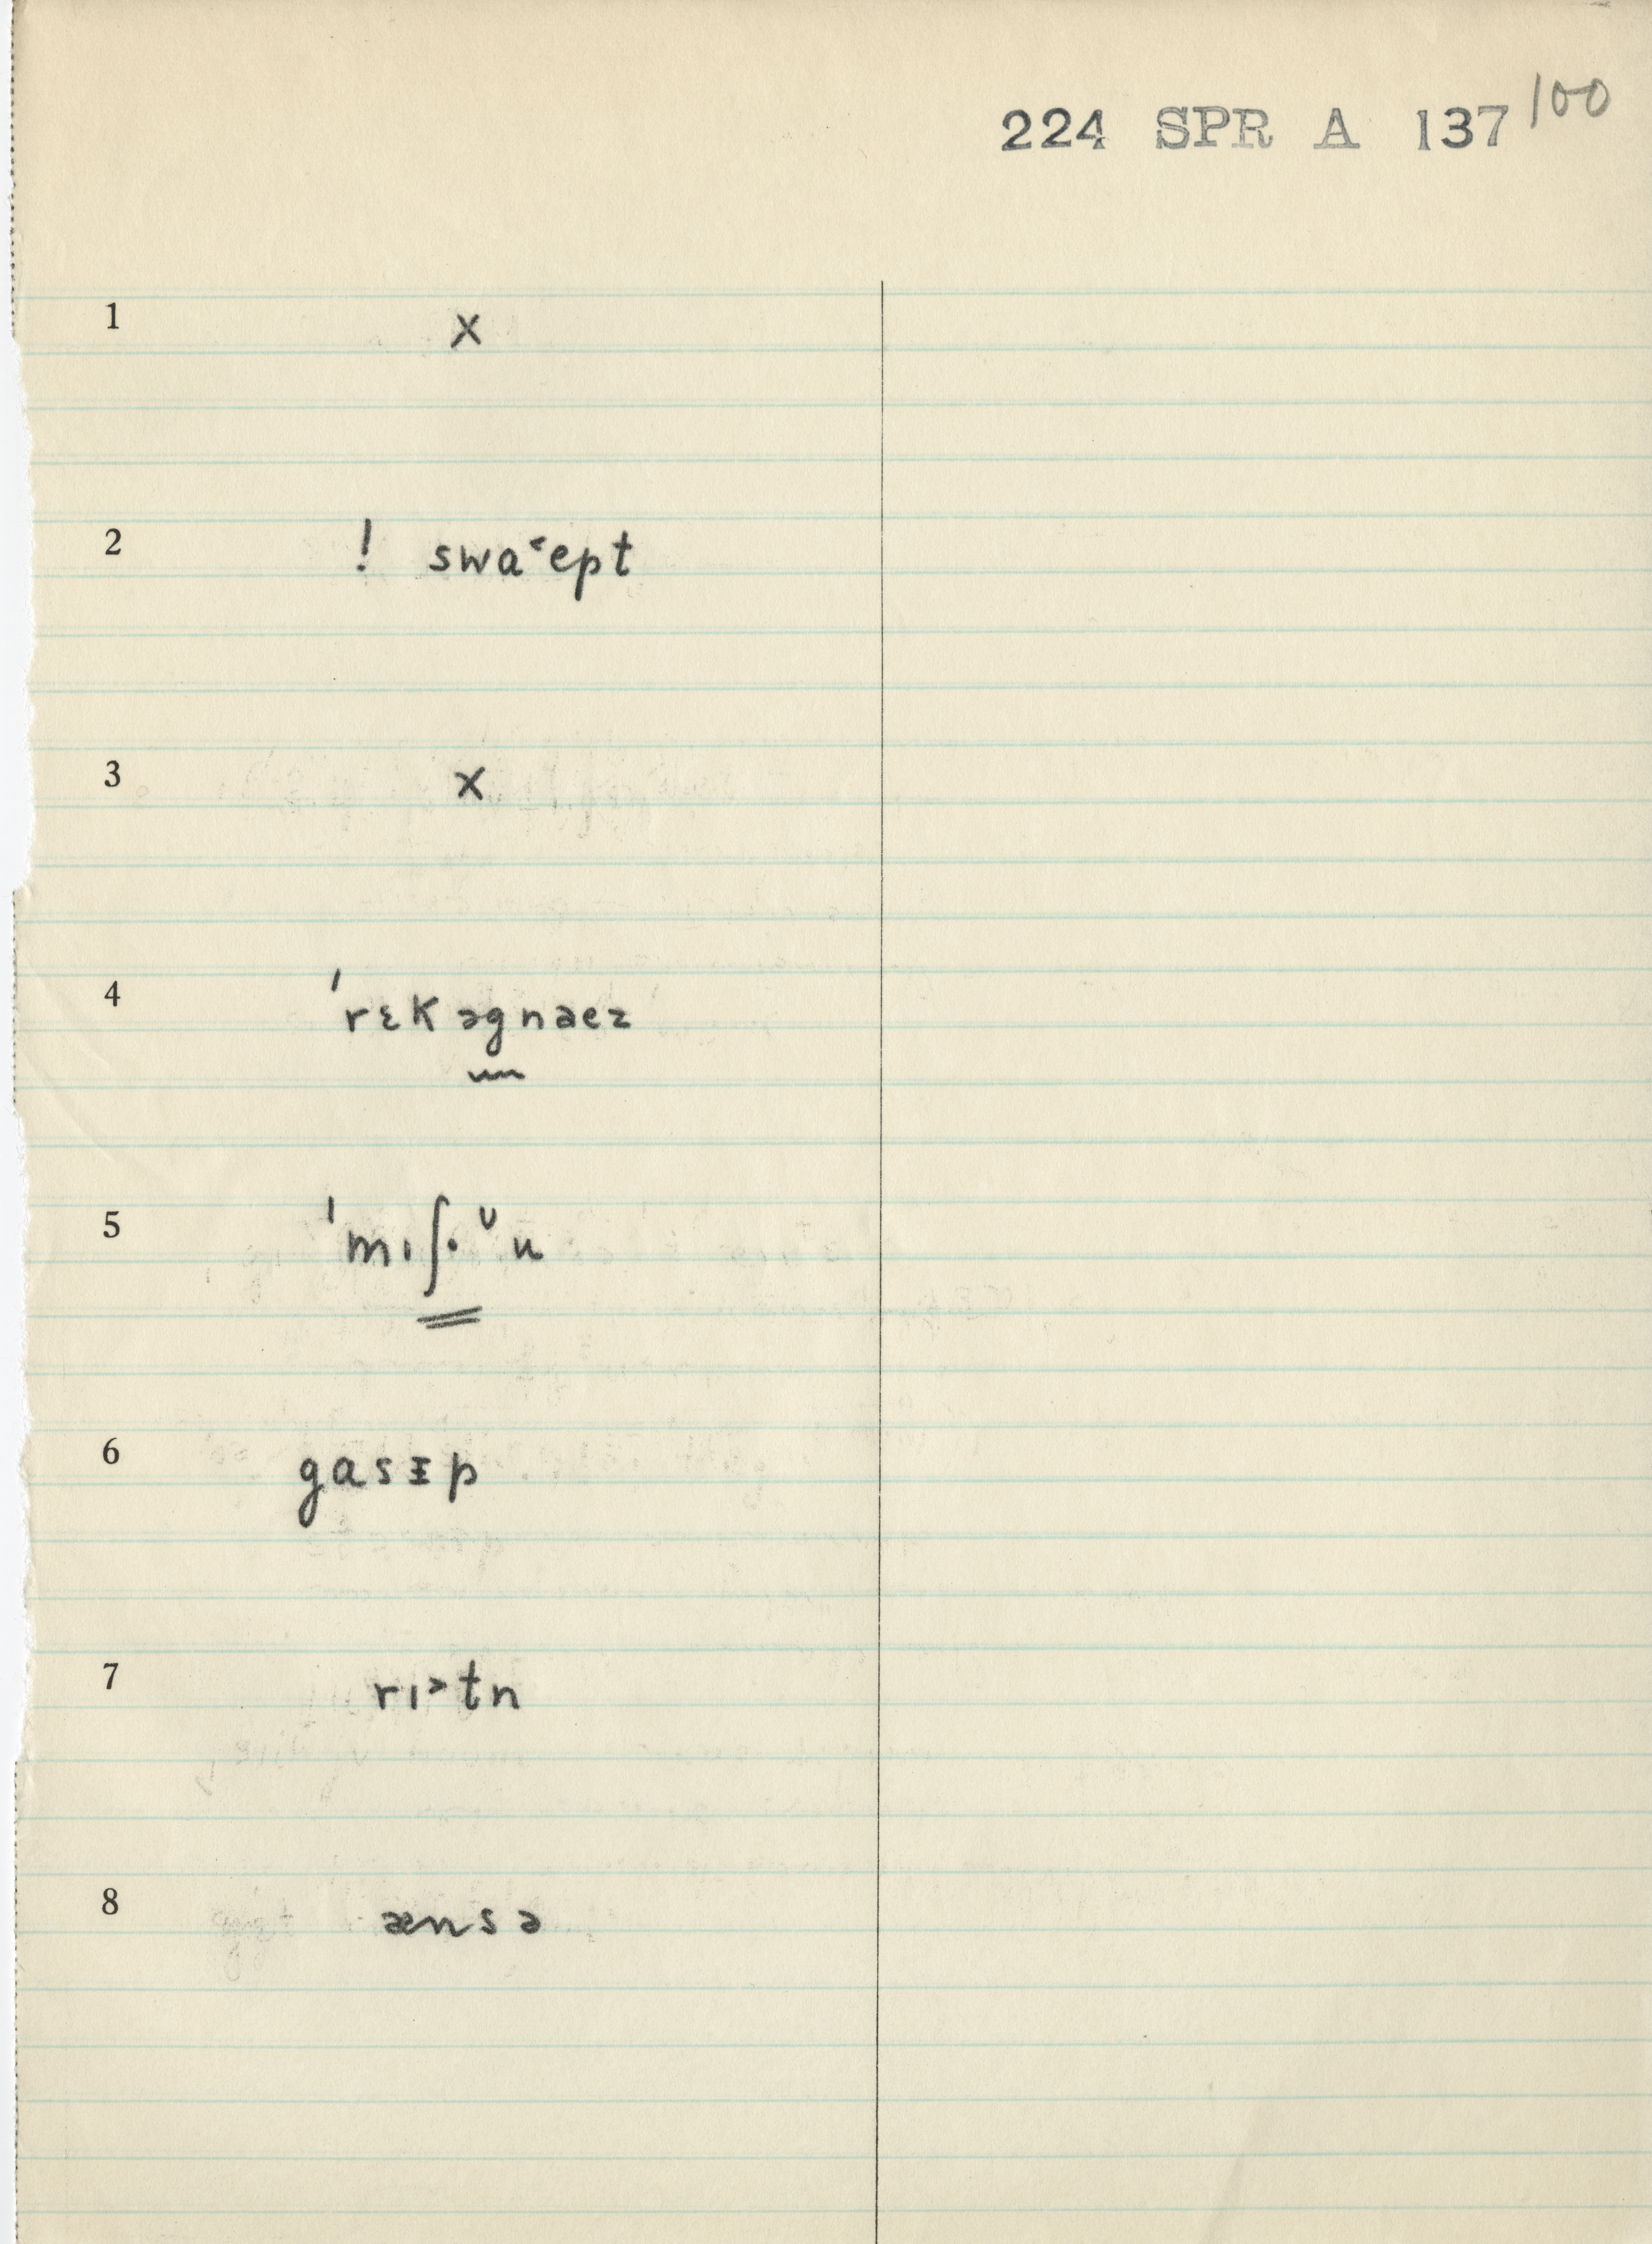 224 SPR A 137 100
1 x
2 ! swa˂ept
3 x
4 ˈrɛkəgnaez
5 ˈmɪʃ· ᵁu
6 gasᵻp
7 rɪ˃tn
8 ænsə